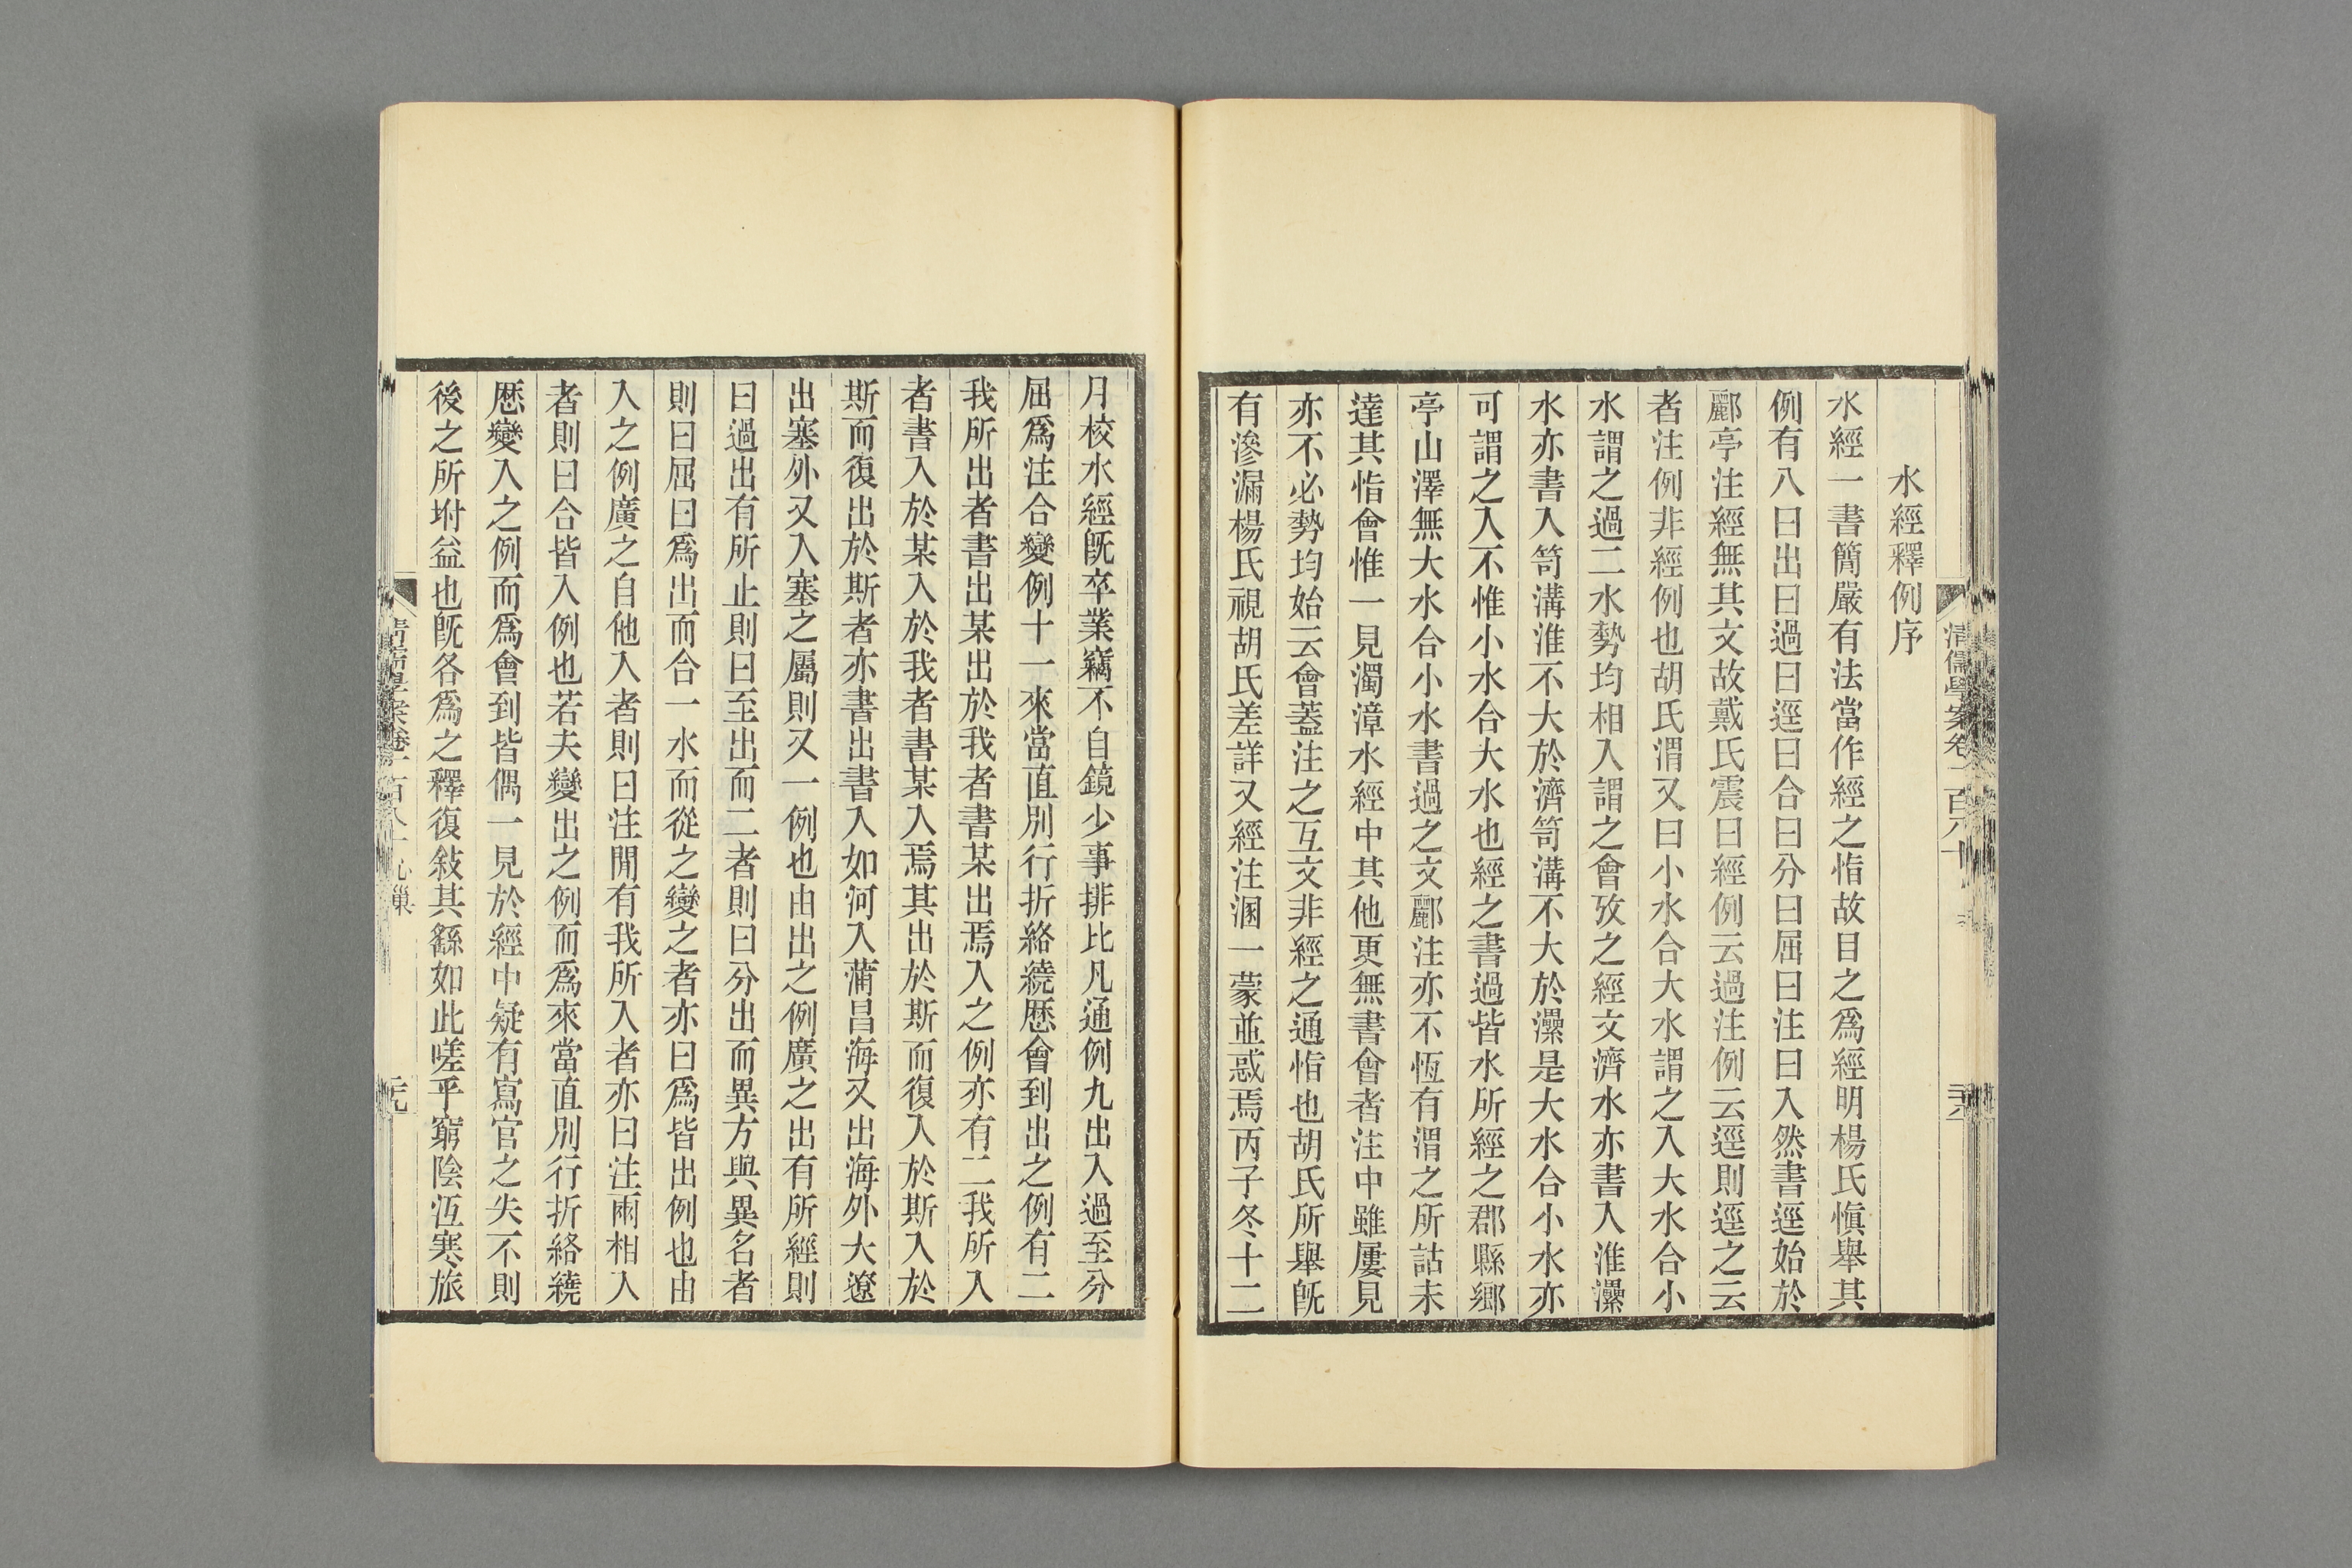 水經釋例序
水經一書簡嚴有法當作經之恉故目之爲經明楊氏愼舉其
例有八曰出曰過曰逕曰合曰分曰屈曰注曰入然書逕始於
酈亭注經無其文故戴氏震曰經例云過注例云逕則逕之云
者注例非經例也胡氏渭又曰小水合大水謂之入大水合小
水謂之過二水勢均相入謂之會攷之經文濟水亦書入淮灅
水亦書入笥溝淮不大於濟笥溝不大於灅是大水合小水亦
可謂之入不惟小水合大水也經之書過皆水所經之郡縣鄉
亭山澤無大水合小水書過之文酈注亦不恆有渭之所詁未
達其恉會惟一見濁漳水經中其他更無書會者注中雖屢見
亦不必勢均始云會蓋注之互文非經之通恉也胡氏所舉旣
有滲漏楊氏視胡氏差詳又經注溷一蒙並惑焉丙子冬十二
月校水經旣卒業竊不自鏡少事排比凡通例九出入過至分
屈爲注合變例十一來當直別行折絡繞歷會到出之例有二
我所出者書出某出於我者書某出焉入之例亦有二我所入
者書入於某入於我者書某入焉其出於斯而復入於斯入於
斯而復出於斯者亦書出書入如河入蒲昌海又出海外大遼
出塞外又入塞之屬則又一例也由出之例廣之出有所經則
曰過出有所止則曰至出而二者則曰分出而異方與異名者
則曰屈曰爲出而合一水而從之變之者亦曰爲皆出例也由
入之例廣之自他入者則曰注閒有我所入者亦曰注兩相入
者則曰合皆入例也若夫變出之例而爲來當直別行折絡繞
歷變入之例而爲會到皆偶一見於經中疑有寫官之失不則
後之所坿益也旣各爲之釋復敍其繇如此嗟乎窮陰沍寒旅